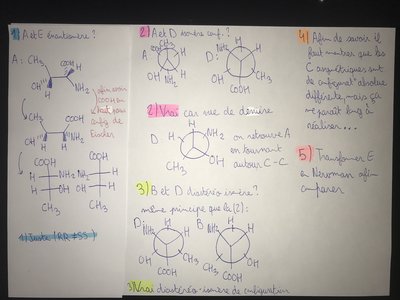 1) A et E énantiomère ?
A : CH3
H
COOH
OH
H
NH2
afin avoir
COOH en
haut pour
config de
Fischer
CH3
COOH
H
OH
H
NH2
COOH
COOH
H
NH2
NH2
H
H
OH
OH
H
CH3
CH3
1) Juste (RR ≠ SS)
2) A et D isomère conf. ?
A
COOH
CH3
H
OH
NH2
H
D :
NH2
H
H
OH
CH3
COOH
2) Vrai car vue de derrière
D :
H
NH2
H
OH
CH3
COOH
on retrouve A
en tournant
autour C-C
3) B et D diastéréoisomère ?
même principe que la (2) :
D :
NH2
H
H
OH
CH3
COOH
B
NH2
H
OH
H
CH3
COOH
3) Vrai diastéréo-isomère de configuration
4) Afin de savoir il
faut montrer que les
C asymétriques sont
de configurat° absolue
différente, mais ça
me paraît long à
réaliser ...
5) Transformer E
en Newman afin
comparer